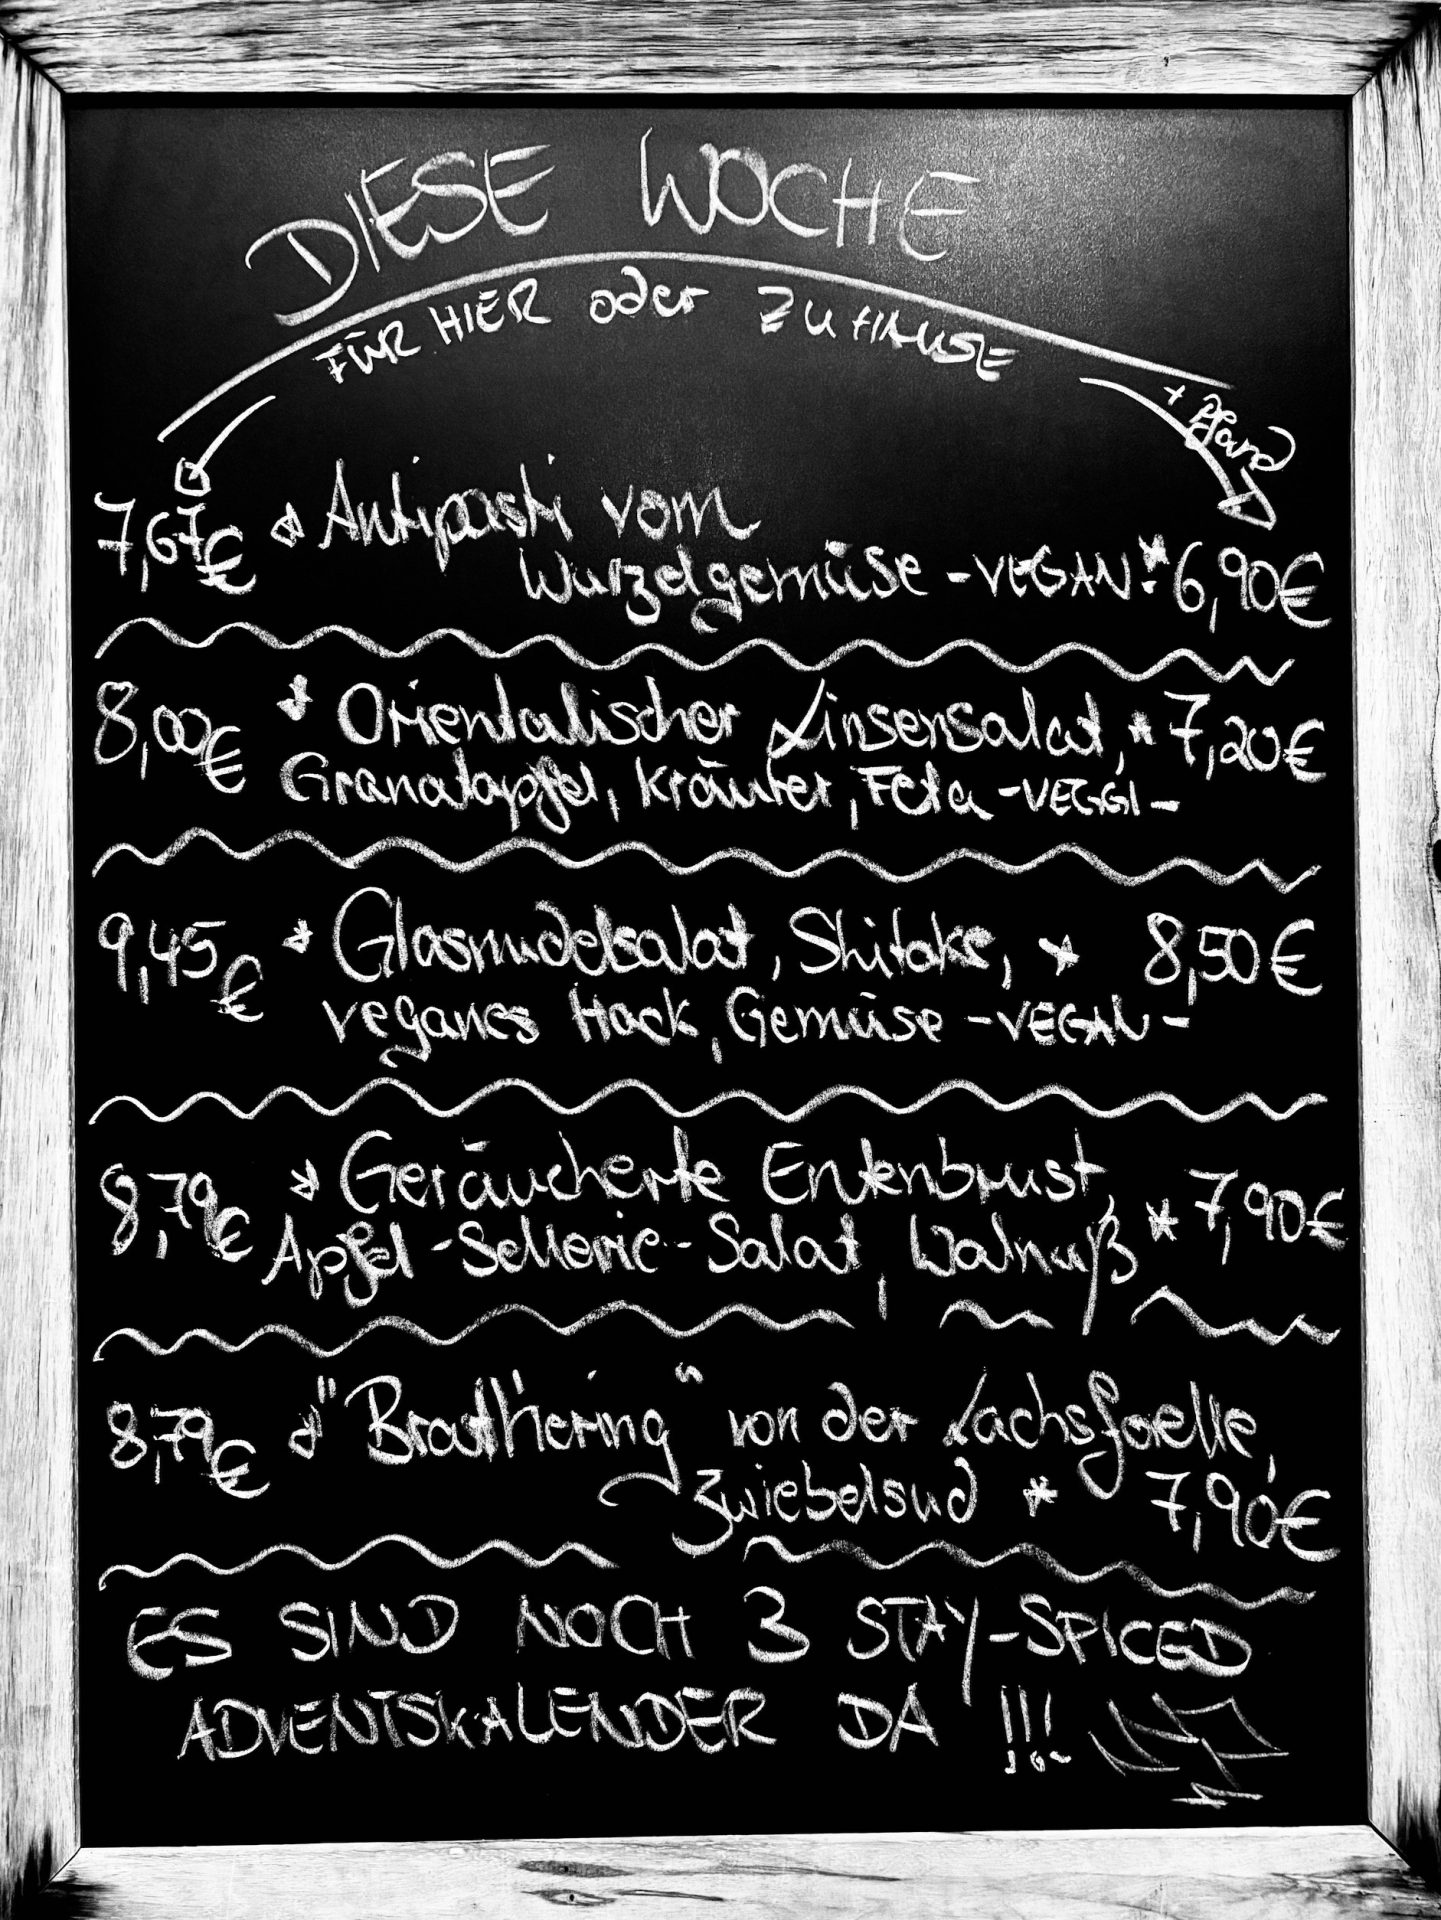 DIESE WOCHE
FÜR HIER oder ZUHAUSE
+ Pfand
7,67€ * Antipasti vom
Wurzelgemüse -VEGAN- * 6,90€
8,00€ * Orientalischer Linsensalat, * 7,20€
Granatapfel, Kräuter, Feta -VEGGI-
9,45€ * Glasnudelsalat, Shitake, * 8,50€
veganes Hack, Gemüse -VEGAN-
8,79€ * Geräucherte Entenbrust,
Apfel-Sellerie-Salat, Walnuß * 7,90€
8,79€ * "Brathering" von der Lachsforelle,
Zwiebelsud * 7,90€
ES SIND NOCH 3 STAY-SPICED
ADVENTSKALENDER DA !!!